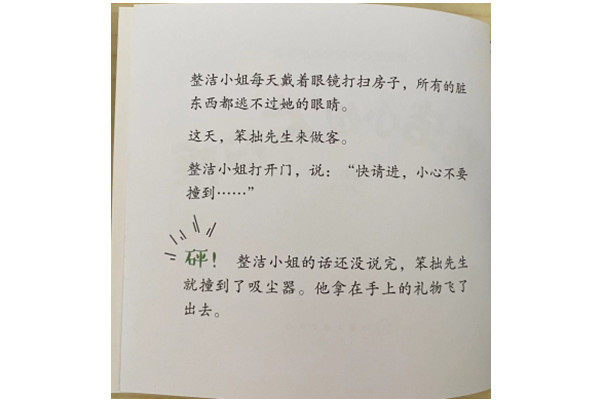 整洁小姐每天戴着眼镜打扫房子，所有的脏
东西都逃不过她的眼睛。
这天，笨拙先生来做客。
整洁小姐打开门，说：“快请进，小心不要
撞到……”
砰！整洁小姐的话还没说完，笨拙先生
就撞到了吸尘器。他拿在手上的礼物飞了
出去。